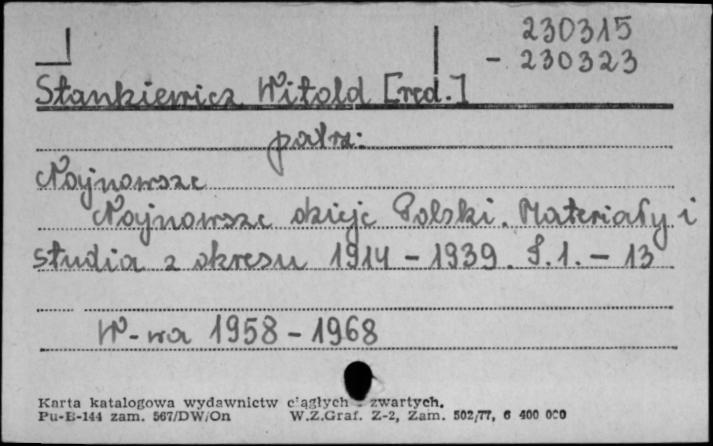 230315
- 230323
Stankiewicz Witold [red.]
patrz:
Najnowsze
Najnowsze dzieje Polski. Materiały i
studia z okresu 1914 - 1939. T. 1. - 13
W-wa 1958 - 1968
Karta katalogowa wydawnictw ciągłych zwartych.
Pu-B-144 zam. 567/DW/On W.Z.Graf. Z-2, Zam. 502/77, 6 400 000